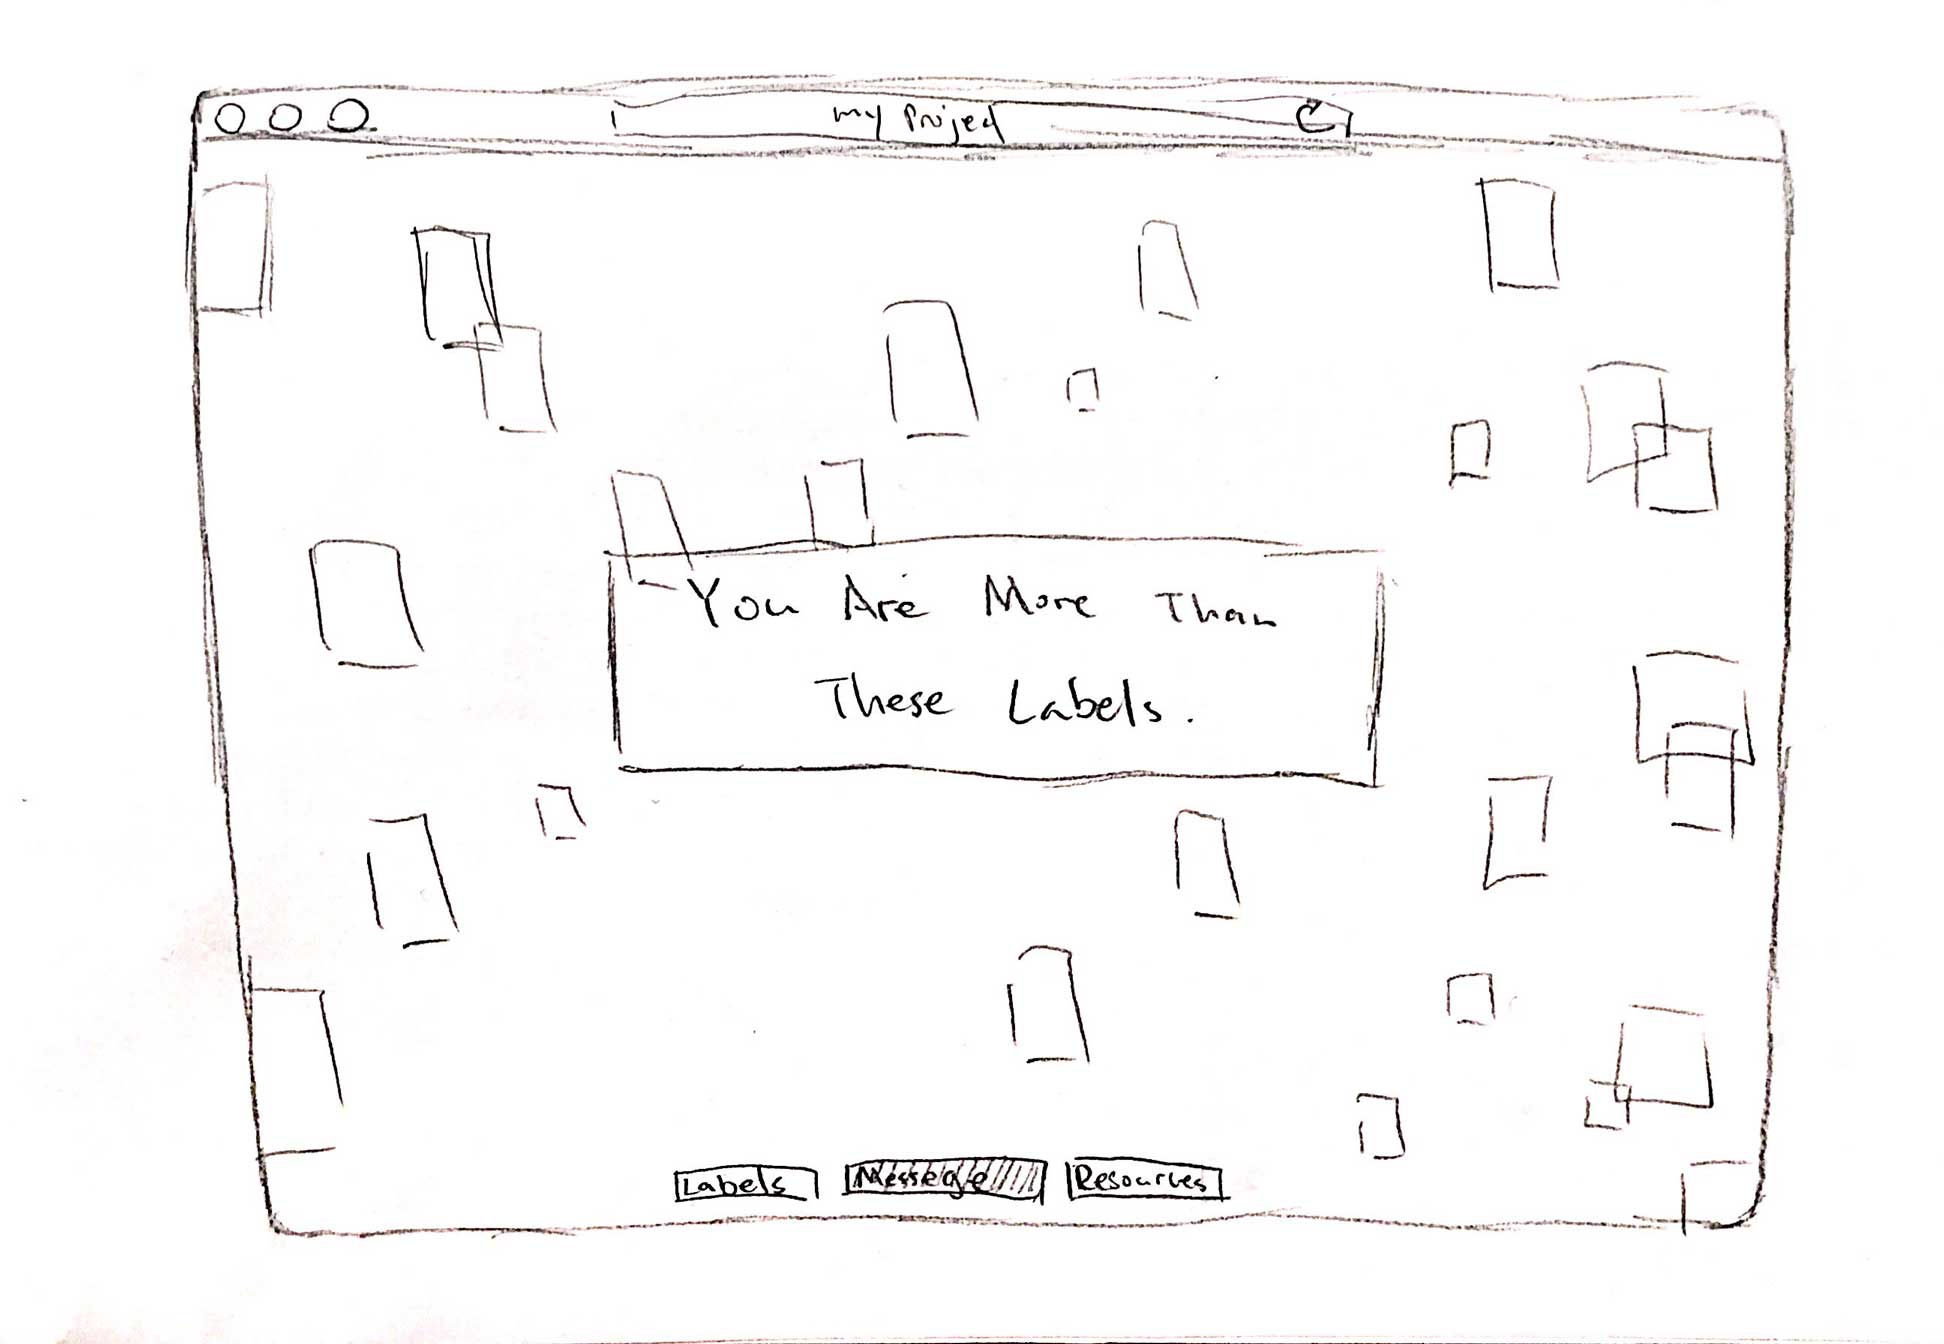 my Project
You Are More Than
These Labels.
Labels
Message
Resources